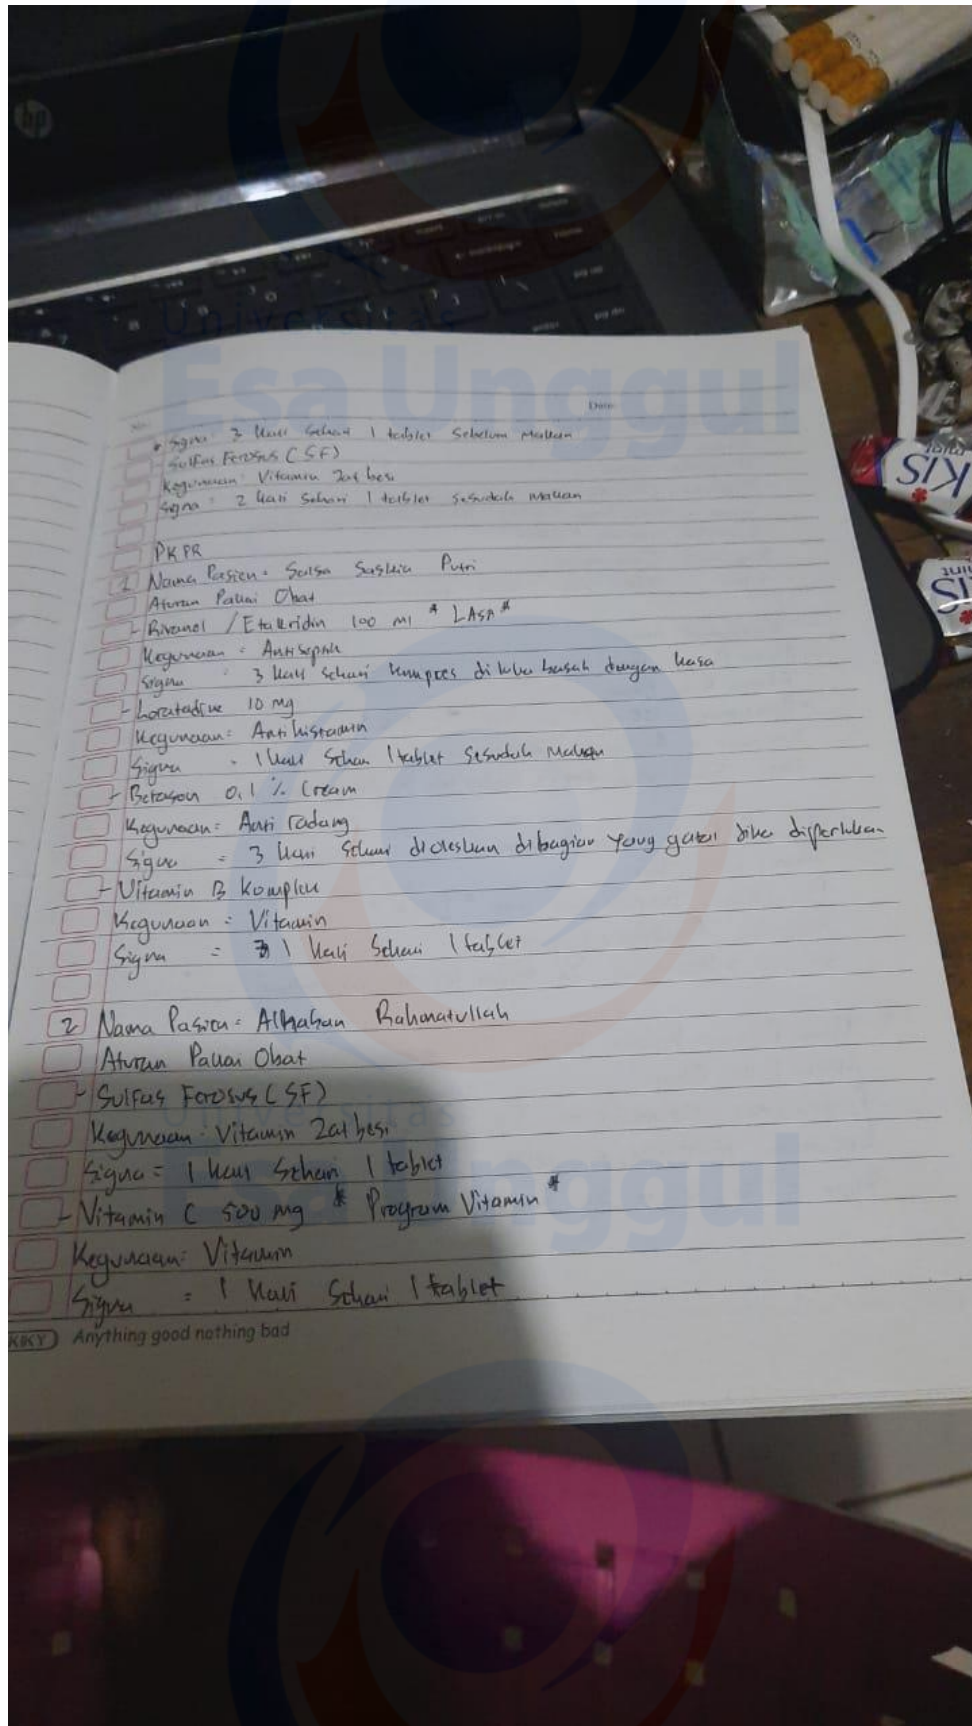 hp
Universitas
Esa Unggul
KIS
mint
No.
Date
* Signa : 3 Kali Sehari 1 tablet Sebelum Makan
- Sulfas Ferosus (SF)
Kegunaan : Vitamin Zat besi
Signa : 2 Kali Sehari 1 tablet Sesudah Makan
PKPR
1 Nama Pasien = Salsa Saskia Putri
Aturan Pakai Obat
- Rivanol / Etakridin 100 ml * LASA *
Kegunaan = Antiseptik
Signa : 3 Kali Sehari Kompres di luka basah dengan kasa
- Loratadine 10 mg
Kegunaan = Antihistamin
Signa = 1 Kali Sehari 1 tablet Sesudah Makan
- Betason 0,1 % Cream
Kegunaan = Anti radang
Signa = 3 Kali Sehari dioleskan dibagian yang gatal jika diperlukan
- Vitamin B Komplek
Kegunaan = Vitamin
Signa = 1 Kali Sehari 1 tablet
2 Nama Pasien = Rahmatullah
Aturan Pakai Obat
- Sulfas Ferosus (SF)
Kegunaan : Vitamin Zat besi
Signa = 1 Kali Sehari 1 tablet
- Vitamin C 500 mg * Program Vitamin *
Kegunaan : Vitamin
Signa = 1 Kali Sehari 1 tablet
KIKY Anything good nothing bad
Universitas
Esa Unggul